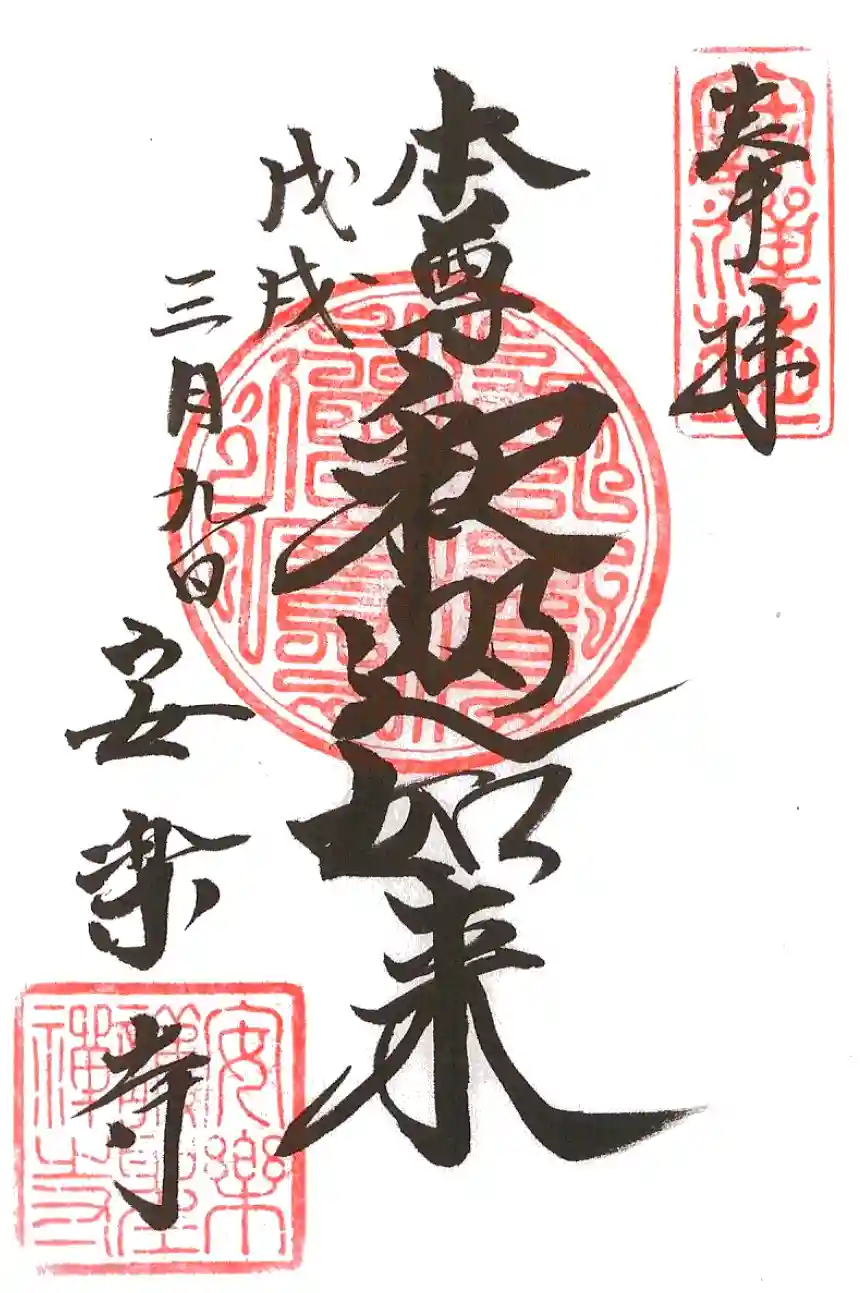 奉拝
本尊
釈迦如来
戊戌
三月九日
安楽寺
安樂護聖禅寺